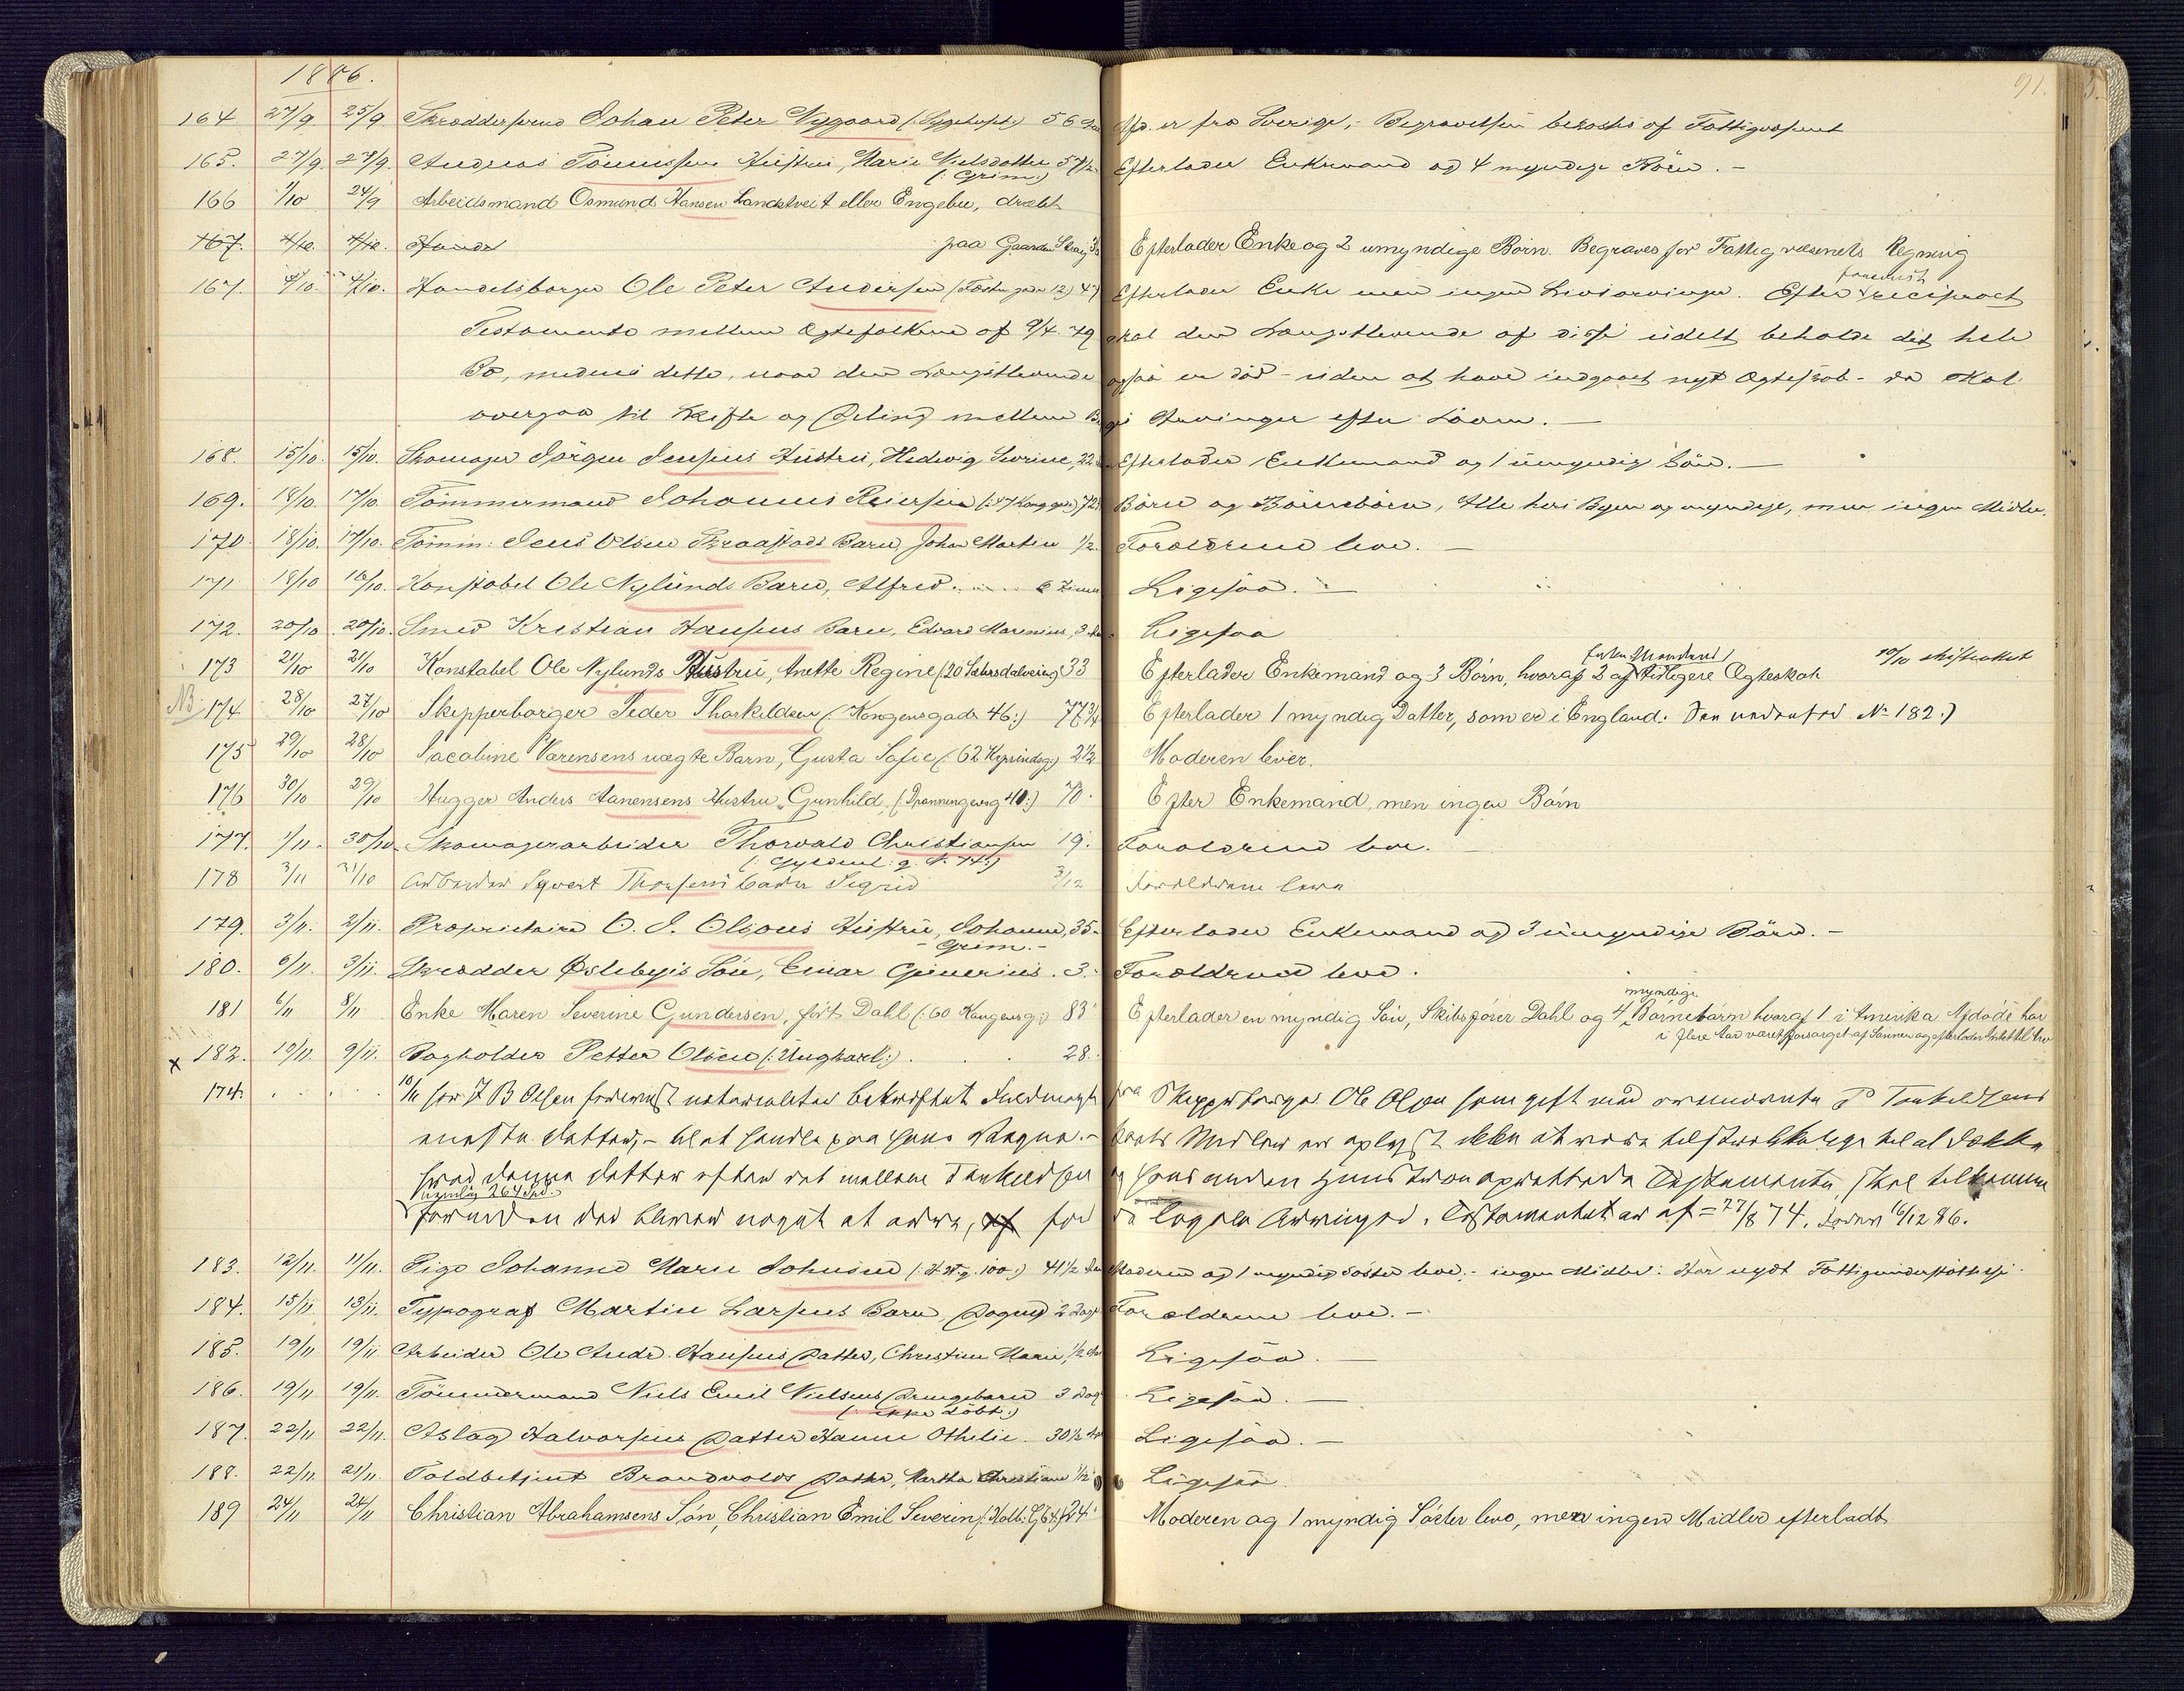 1886.
91.
164 27/9 25/9 Skræddersvend Johan Peter Nygaard (Sygehuset) 56 Afd. er fra Sverige, Begravelsen bekostes af Fattigvæsenet
165. 27/9. 27/9. Andreas Tønnessens Hustru, Marie Nielsdatter 57 1/2 Efterlader Enkemand og 4 myndige Børn. -
(: Grim:)
166 1/10 24/9 Arbeidsmand Osmund Hansen Landstveit eller Engebu, dræbt
167. 4/10. 4/10. paa Gaarden Efterlader Enke og 2 umyndige Børn. Begraves for Fattigvæsenets Regning
167. 4/10. 4/10. Handelsborger Ole Peter Andersen 12) 47 Efterlader Enke men ingen Livsarvinger. Efter forevist reciproct
Testamente mellem Ægtefolkene af 9/4 79 skal den Længstlevende af disse udelt beholde det hele
Bo, medens dette, naar den Længstlevende ogsaa er død - uden at have indgaaet nyt Ægteskab - da skal
overgaa til Skifte og Deling mellem Begges Arvinger efter Loven. -
168. 15/10. 15/10. Skomager Jørgen Jensens Hustru, Hedvig Severine, 22 Efterlader Enkemand og 1 umyndig Søn. -
169. 18/10. 17/10. Tømmermand Johannes Reiersen (: 47 Kong.) 72 Børn og Børnebørn, Alle her i Byen og myndige, men ingen Midler.
170. 18/10. 17/10. Tømm: Jens Olsen Skraastads Barn, Johan Martin 1/2. Forældrene leve. -
171 18/10 16/10. Konstabel Ole Nylunds Barn, Alfred. . . . 2 Timer Ligesaa. -
172. 20/10. 20/10. Smed Kristian Hansens Barn, Edvard Marenius, 3 Ligesaa
173 21/10 21/10 Konstabel Ole Nylunds Hustru, Anette Regine 33 Efterlader Enkemand og 3 Børn, hvoraf 2 af Enkemandens tidligere Ægteskab
NB 174 28/10 27/10 Skipperborger Peder Thorkildsen (: Kongensgade 46:) 77 3/4 Efterlader 1 myndig Datter, som er i England. Den nedenfor No 182.)
175 29/10 28/10 Jacobine Sørensens uægte Barn, Gusta Sofie (: 62 2 1/2 Moderen lever.
176 30/10 29/10 Hugger Anders Aanensens Hustru Gunhild, (: Dronningensg 40:) 70. Efter Enkemand, men ingen Børn
177. 1/11. 30/10. Skomagerarbeider Thorvald Christiansen 19. Forældrene leve.
178 3/11 31/10 Sigvert Thorsens Sigrid 3/12 Forældrene leve
179. 3/11. 2/11. Proprietair O. J. Olsons Hustru, Johanne, 35. Efterlader Enkemand og 3 umyndige Børn. -
- Grim. -
180. 6/11. 3/11. Skrædder Østebyis Søn, Einar Gunerius. 3. Forældrene leve.
181 6/11 8/11 Enke Maren Severine Gundersen, født Dahl (: 60 Kongensg:) 83 Efterlader en myndig Søn, Skibsfører Dahl og 4 myndige Børnebørn hvoraf 1 i Amerika Afdøde har
i flere Aar været forsørget af Sønnen og efterlader Intet
x 182. 10/11. 9/11. Bogholder Petter Olsen (: Ungkarl:) . . 28.
174. . . . 10/11 har J B Olsen forevist notarialiter bekræftet Fuldmagt fra Skipperborger Ole Olsen som gift med P. Torkildsens
eneste Datter, - til at handle paa hans Vegne. - Midler er oplyst ikke at være tilstrækkelige til at dække
hvad denne Datter efter det mellem Torkildsen og hans anden Hustru oprettede Testamente skal tilkomme
nemlig 264 Spd.
forinden der bliver noget at arve, for legale Arvinger. Testamentet er af 27/8 74. 16/12 86.
183. 12/11. 11/11. Pige Johanne Marie Johnsen (: 100:) 41 1/2 Moderen og 1 myndig Søster leve; - ingen Midler: Har nydt Fattigunderstøttelse.
184. 15/11. 13/11. Typograf Martin Larsens Barn, Dagny 2 Dage Forældrene leve. -
185. 19/11 19/11 Arbeider Ole Andr. Hansens Datter, Christine Marie, 1/2 Ligesaa. -
186. 19/11 19/11. Tømmermand Niels Emil Nielsens Drengebarn 3 Dage Ligesaa. -
(: ikke døbt:)
187. 22/11 22/11. Aslag Halvorsens Datter Hanne Othilie. 30 1/2 Ligesaa. -
188. 22/11. 21/11. Toldbetjent Brandvolds Datter, Martha Christiane 1/2 Ligesaa
189 24/11 24/11 Christian Abrahamsens Søn, Christian Emil Severin (: Holb: G 64) 24 Moderen og 1 myndig Søster leve, men ingen Midler efterladt